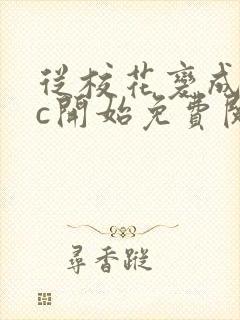 從校花變成
c開始免費閱
尋香蹤